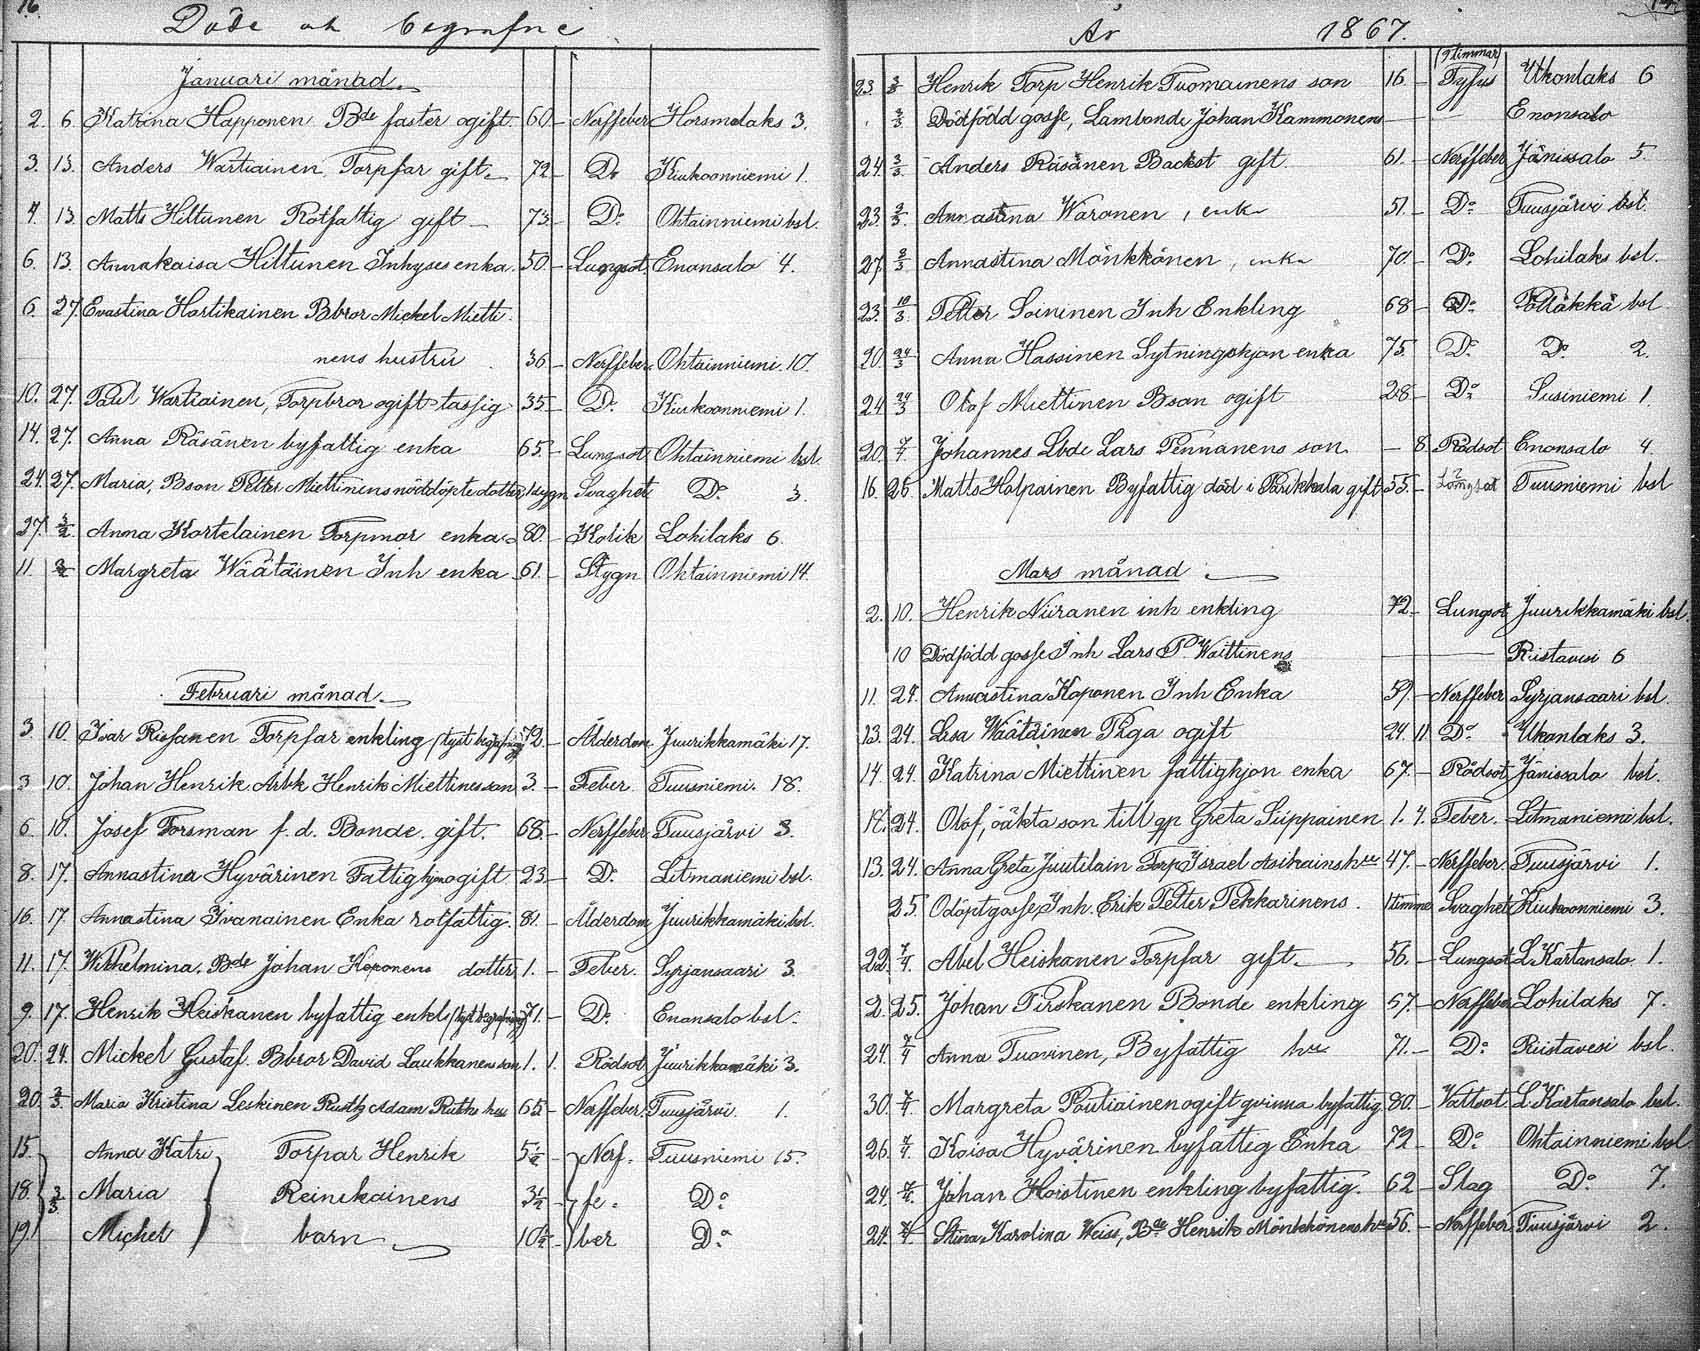 16.
Döde och begrafne
Januari månad
2. 6. Katrina Happonen Bde faster ogift. 60 – Nerffeber Horsmalaks 3.
3. 13. Anders Wartiainen Torpfar gift 72 – Do Kiukoonniemi 1.
4. 13. Matts Hiltunen Rotfattig gift – 73 – Do Ohtainniemi bsl.
6. 13. Annakaisa Hiltunen Inhyses enka. 50 – Lungsot. Enonsalo 4.
6. 27. Evastina Hartikainen Bbror Mickel Mietti-
nens hustru 36 – Nerffeber. Ohtainniemi. 10.
10. 27. Paul Wartiainen, Torpbror ogift tassig 35 – Do Kiukoonniemi 1.
14. 27. Anna Räsänen byfattig enka 65 – Lungsot Ohtainniemi bsl.
24. 27. Maria, Bson Petter Miettinens nöddöpte dotter 1 dygn Svaghet Do 3.
27. 3/2 Anna Kortelainen Torpmor enka 80. – Kolik Lohilaks 6.
11. 3/2 Margreta Wäätäinen Inh enka 61. – Stygn Ohtainniemi 14.
Februari månad
3. 10. Ivar Rissanen Torpfar enkling (tyst begrafning) 72. – Ålderdom Juurikkamäki 17.
3 10. Johan Henrik Arbk Henrik Miettinens son 3. – Feber. Tuusniemi. 18.
6. 10. Josef Forsman f.d. Bonde. gift. 68. – Nerffeber. Tuusjärvi 3.
8. 17. Annastina Hyvärinen Fattighjon ogift 23 – Do Litmaniemi bsl.
16. 17. Annastina Ivanainen Enka rotfattig. 81. – Ålderdom Juurikkamäki bsl.
11. 17. Wilhelmina, Bde Johan Koponens dotter 1. – Feber. Syrjansaari 3.
9. 17. Henrik Heiskanen byfattig enkl (tyst begrafning) 71. – Do Enonsalo bsl.
20. 24. Mickel Gustaf. Bbror David Laukkanens son 1. 1. Rödsot Juurikkamäki 3.
20. 3/3 Maria Kristina Leskinen Adam Ruths hu 65 – Nerffeber. Tuusjärvi. 1.
15. Anna Katri Torpar Henrik 5 1/2 Nerf- Tuusniemi 15.
18. 3/3 Maria Reinikainens 3 1/2 fe- Do
19. Michel barn 10 1/2 ber Do
År 1867.
(9 timmar)
23. 3/3 Henrik Torp Henrik Tuomainens son 16. – Tyfus Ukonlaks 6
3/3 Dödfödd gosse, Lambonde Johan Kammonens – Enonsalo
24. 3/3 Anders Räsänen Backst gift 61. – Nerffeber Jänissalo 5.
23. 3/3. Annastina Waronen, enka 51. – Do Tuusjärvi bsl.
27. 3/3 Annastina Mönkkönen, enka 70. – Do Lohilaks bsl.
23. 10/3. Petter Soininen Inh Enkling 68 – Do Pölläkkä bsl
20. 24/3 Anna Hassinen Sytningshjon enka 75. Do Do 2.
24. 24/3 Olof Miettinen Bson ogift 28 – Do Susiniemi 1.
20. 7/4. Johannes Lbde Lars Pennanens son – 8. Rödsot Enonsalo 4.
16. 25. Matts Holpainen Byfattig död i Parikkala gift 55. – Lungsot Tuusniemi bsl
Mars månad
2. 10. Henrik Niiranen inh enkling 72 – Lungsot Juurikkamäki bsl.
10 Dödfödd gosse Inh Lars P. Waittinens – Riistavesi 6
11. 24. Annastina Koponen Inh Enka 59. – Nerffeber Syrjansaari bsl.
13. 24. Lisa Wäätäinen Piga ogift 24. 11 Do Ukonlaks 3.
14 24. Katrina Miettinen fattighjon enka 67. – Rödsot Jänissalo bsl.
17. 24. Olof, oäkta son till qp Greta Siippainen 1. 4. Feber. Litmaniemi bsl.
13. 24. Anna Greta Juutilain Torp Israel Asikains hu 47. – Nerffeber. Tuusjärvi 1.
25. Odöpt gosse, Inh. Erik Petter Pekkarinens. 1 timme Svaghet Kiukoonniemi 3.
22. 7/4. Abel Heiskanen Torpfar gift – 56. – Lungsot L. Kartansalo. 1.
2. 25. Johan Pirskanen Bonde enkling 57. – Nerffeber Lohilaks 7.
24. 7/4 Anna Tuovinen, Byfattig hu 71. – Do Riistavesi bsl.
30. 7/4. Margreta Poutiainen ogift qvinna byfattig 80. – Vattsot L. Kartansalo bsl.
26. 7/4. Kaisa Hyvärinen byfattig Enka 72 – Do Ohtainniemi bsl
24. 7/4. Johan Hoistinen enkling byfattig. 62 – Slag Do 7.
24. 7/4. Stina Karolina Weiss, Bde Henrik Mönkkönens hu 56. – Nerffeber Tuusjärvi 2.